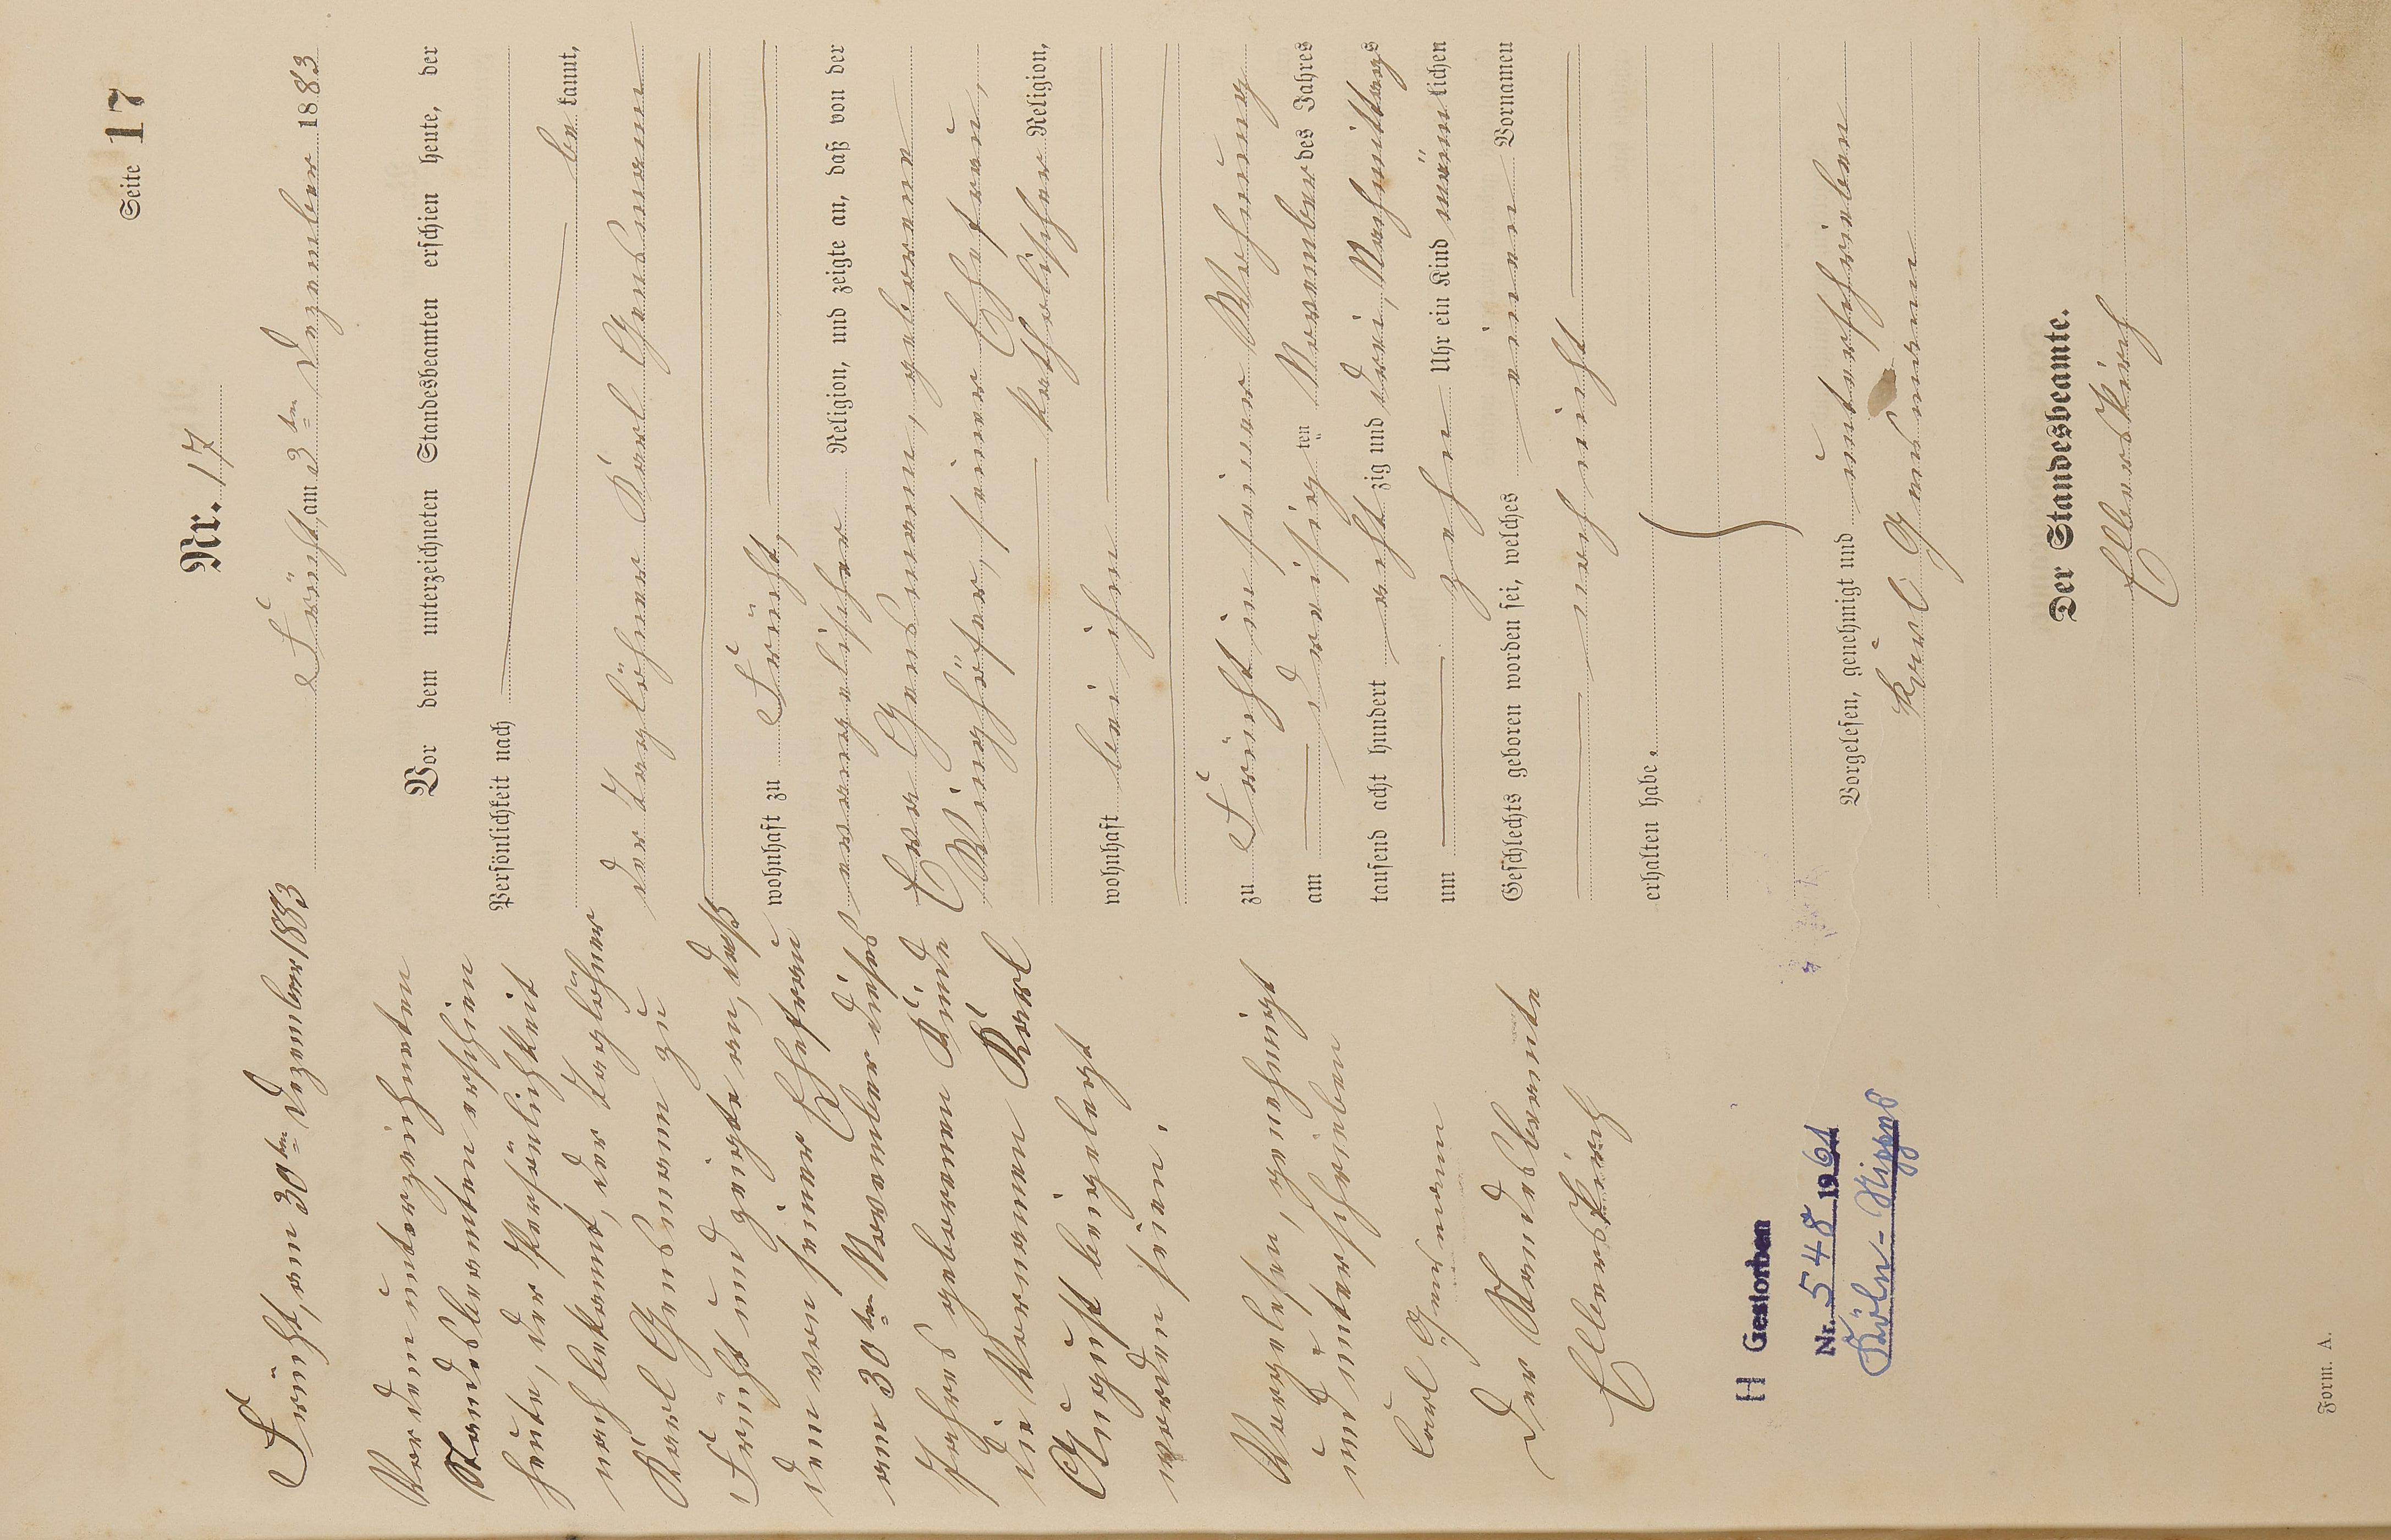 Seite 17
Nr. 17
Frücht, am 3ten Dezember 1883
Vor dem unterzeichneten Standesbeamten erschien heute, der
Persönlichkeit nach
be kannt,
der Taglöhner Karl Gensmann
wohnhaft zu Frücht,
evangelischer Religion, und zeigte an, daß von der
Eva Gensmann, geborene
Ringhöfer, seiner Ehefrau,
katholischer Religion,
wohnhaft bei ihm
zu Frücht in seiner Wohnung
am dreißigten November des Jahres
tausend acht hundert acht zig und drei, Nachmittags
um zehn Uhr ein Kind männlichen
Geschlechts geboren worden sei, welches einen Vornamen
noch nicht
erhalten habe.
Vorgelesen, genehmigt und unterschrieben
Karl Gensmann
Der Standesbeamte.
Elberskirch
Frücht, am 30ten Dezember 1883
Vor dem unterzeichneten
Standesbeamten erschien
heute, der Persönlichkeit
nach bekannt, der Taglöhner
Karl Gensmann zu
Frücht und zeigte an, daß
dem von seiner Ehefrau
am 30ten November dieses
Jahres geborenen Kinde
die Vornamen Karl
August beigelegt
worden seien.
Vorgelesen, genehmigt
und unterschrieben
Carl Gensmann
Der Standesbeamte
Elberskirch
H Gestorben
Nr. 548 1961
Köln-Nippes
Form. A.